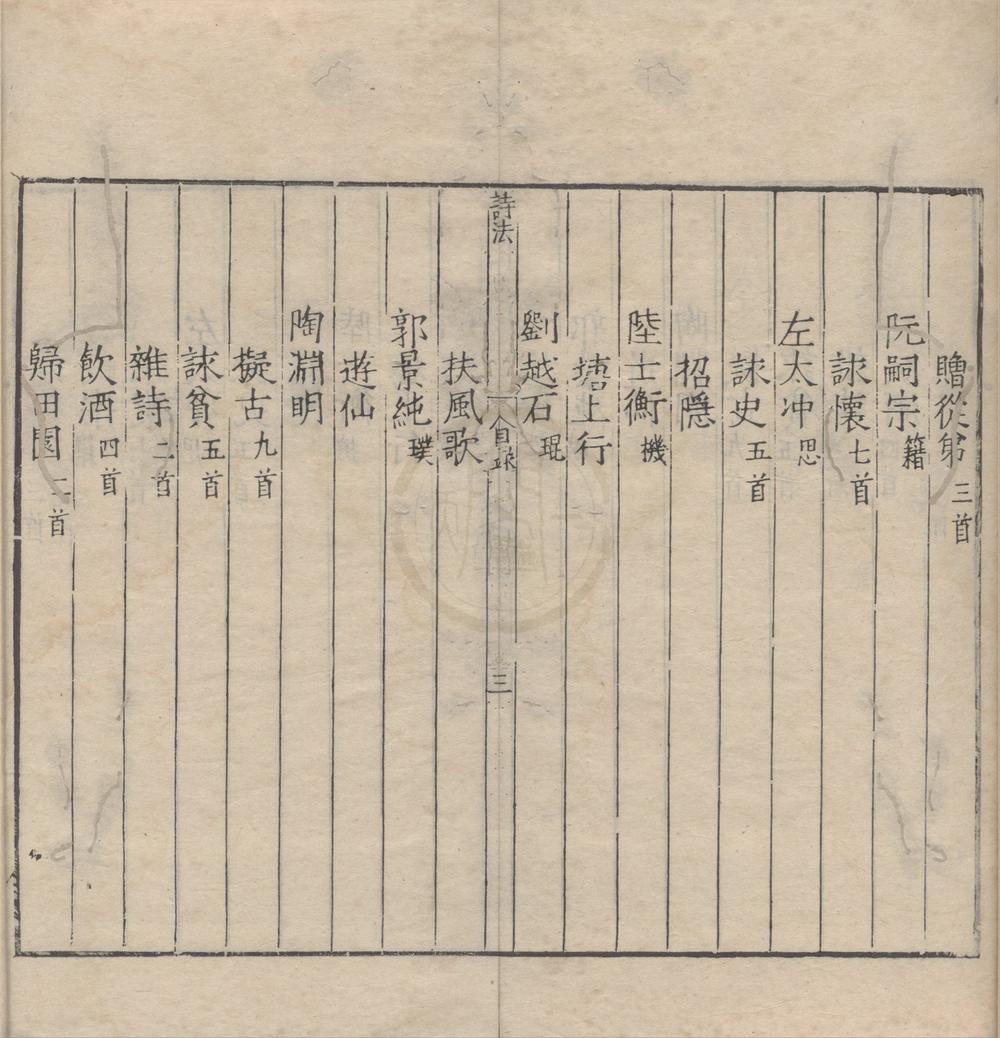 贈從弟三首
阮嗣宗籍
詠懷七首
左太冲思
詠史五首
招隱
陸士衡機
塘上行
劉越石琨
詩法 目録 三
扶風歌
郭景純璞
遊仙
陶淵明
擬古九首
詠貧五首
雜詩二首
飲酒四首
歸田園二首